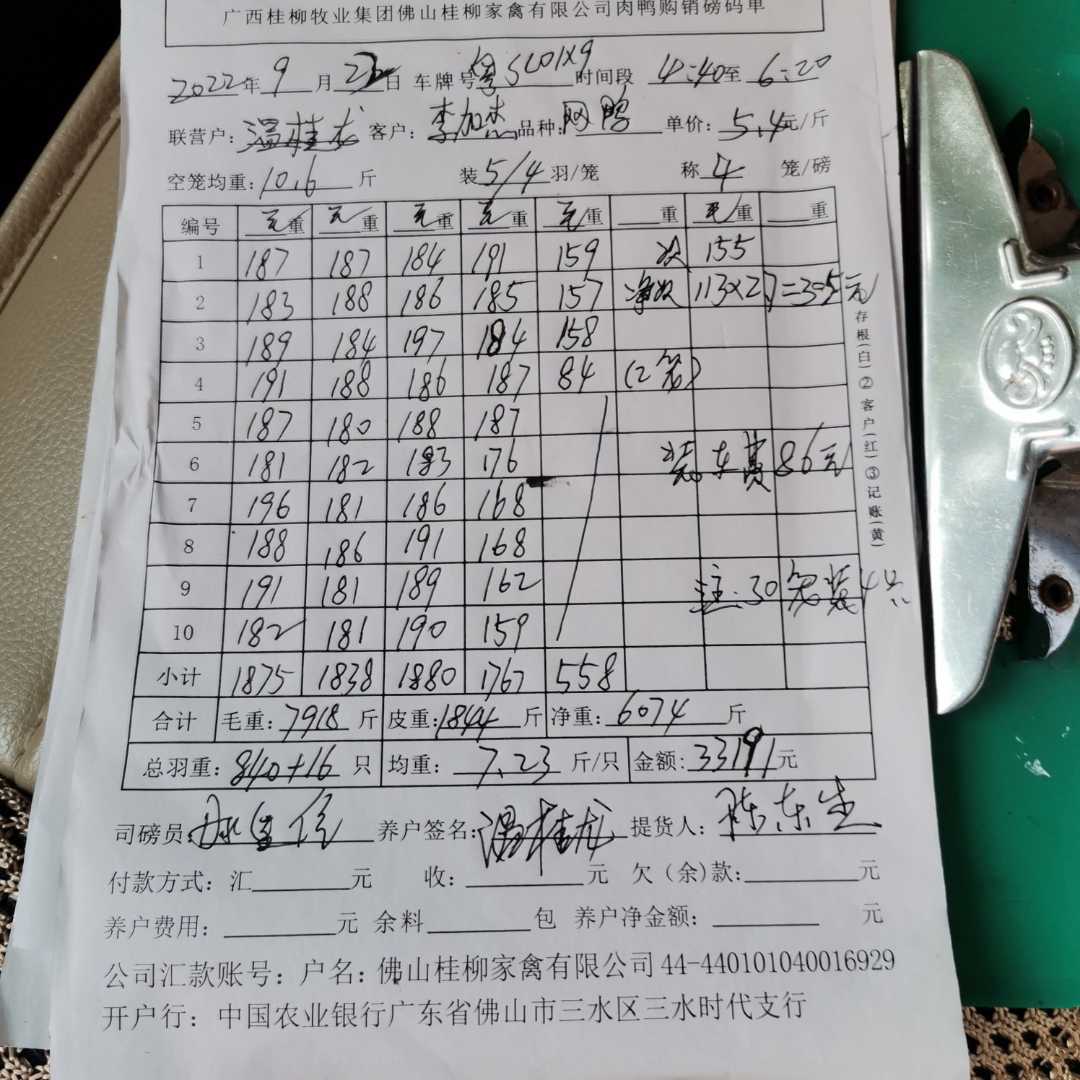 广西桂柳牧业集团佛山桂柳家禽有限公司肉鸭购销磅码单
2022年 9 月 23 日 车牌号 粤SL01X9 时间段 4:40 至 6:20
联营户: 温桂龙 客户: 李加杰 品种: 网鸭 单价: 5.4 元/斤
空笼均重: 10.6 斤 装 5/4 羽/笼 称 4 笼/磅
编号 毛重 毛重 毛重 毛重 毛重 重 毛重 重
1 187 187 184 191 159 次 155
2 183 188 186 185 157 净次 113×2.7=305元
3 189 184 197 184 158
4 191 188 186 187 84 (2笼)
5 187 180 188 187
6 181 182 183 176 装车费86元
7 196 181 186 168
8 188 186 191 168
9 191 181 189 162 注:30笼装4只
10 182 181 190 159
小计 1875 1838 1880 1767 558
合计 毛重: 7918 斤 皮重: 1844 斤 净重: 6074 斤
总羽重: 840+16 只 均重: 7.23 斤/只 金额: 33191 元
司磅员: 养户签名: 温桂龙 提货人: 陈东生
付款方式: 汇 元 收: 元 欠(余)款: 元
养户费用: 元 余料 包 养户净金额: 元
公司汇款账号: 户名: 佛山桂柳家禽有限公司 44-440101040016929
开户行: 中国农业银行广东省佛山市三水区三水时代支行
存根(白)②客户(红)③记账(黄)